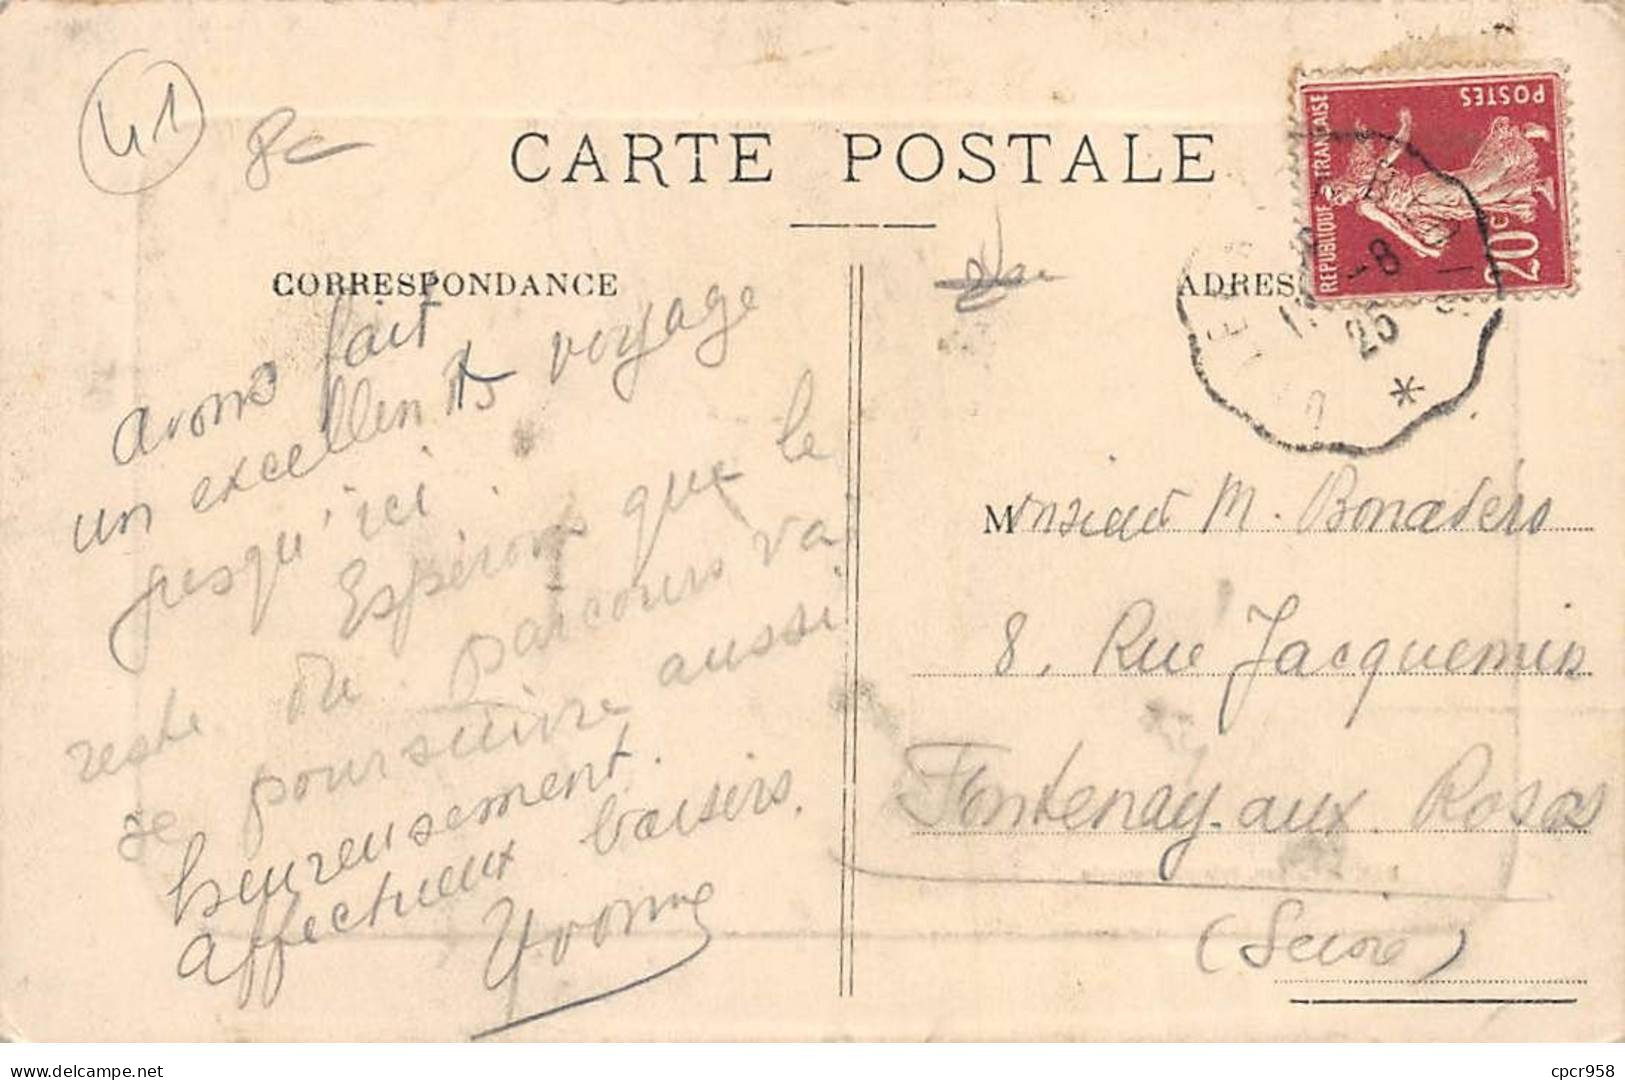 41
CARTE POSTALE
CORRESPONDANCE
ADRES
POSTES
REPUBLIQUE FRANÇAISE
20c
-8
25
*
avons fait
un excellent voyage
jusqu'ici.
Espérons que le
reste du parcours va
se poursuivre aussi
heureusement.
Affectueux baisers.
Yvonne
Monsieur M. Bonadéro
8, Rue Jacquemin
Fontenay-aux Roses
(Seine)
delcampe.net
cpcr958